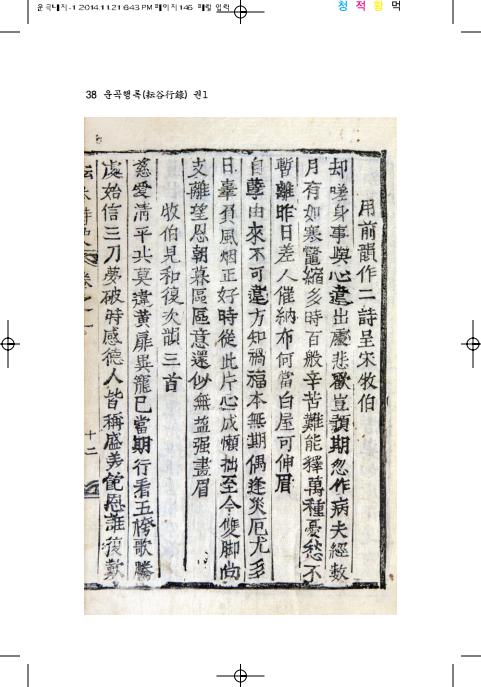 운곡내지-1 2014.11.21 6:43 PM 페이지146
청 적 황 먹
38 운곡행록(耘谷行錄) 권1
用前韻作二詩呈宋牧伯
却嗟身事與心違出處悲歡豈預期忽作病夫經數
月有如寒鷩縮多時百般辛苦難能釋萬種憂愁不
暫離昨日差人催納布何當白屋可伸眉
自孽由來不可違方知禍福本無期偶逢災厄尤多
日辜負風烟正好時從此片心成懶拙至今雙脚尙
支離望恩朝暮區區意還似無鹽强畫眉
牧伯見和復次韻三首
慈愛淸平兆莫違黃扉異寵已當期行看五袴歌騰
處始信三刀夢破時感德人皆稱盛美飽恩誰復歎
十二